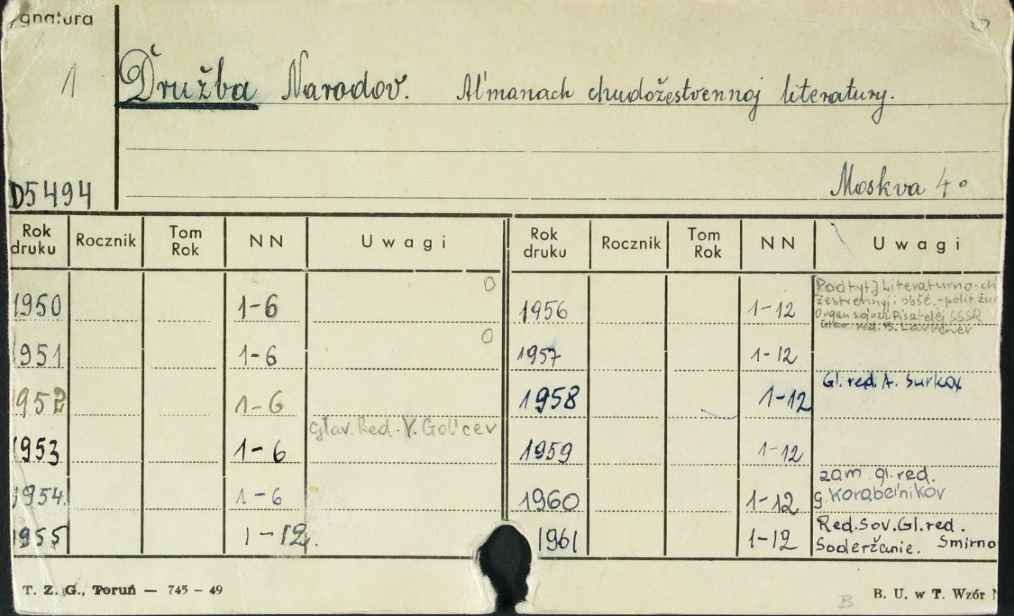 gnatura
1 Družba Narodov. Al'manach chudožestvennoj literatury.
D5494 Moskva 4°
Rok druku Rocznik Tom Rok NN Uwagi Rok druku Rocznik Tom Rok NN Uwagi
1950 1-6 0 1956 1-12 [Podtyt.] Literaturno-ch
žestvennyj i obšč.-polit. žur
Organ sojuza Pisatelej SSSR
red. B. Lavrenev
1951 1-6 0 1957 1-12
1952 1-6 1958 1-12 Gl. red. A. Surkov
1953 1-6 Glav. Red. V. Gol'cev 1959 1-12
1954. 1-6 1960 1-12 zam gl. red.
g Korabel'nikov
1955 1-12. 1961 1-12 Red. Sov. Gl. red.
Soderžanie. Smirno
T. Z. G., Toruń — 745 – 49 B B. U. w T. Wzór